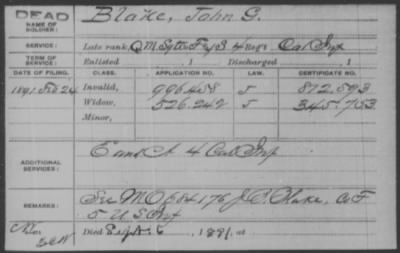 DEAD
NAME OF SOLDIER: Blake, John G.
SERVICE: Late rank, Q.M. Sgt F & S 4 Reg't Cal Inf
TERM OF SERVICE: Enlisted , 1 Discharged , 1
DATE OF FILING. CLASS. APPLICATION NO. LAW. CERTIFICATE NO.
1891 Feb 24 Invalid, 996458 J 872.593
Widow, 526.242 J 345.753
Minor,
ADDITIONAL SERVICES: E and A 4 Cal Inf
REMARKS: See M O 684176 J. C. Blake, Co F
5 U S Inf
Died Sept. 6 1891.